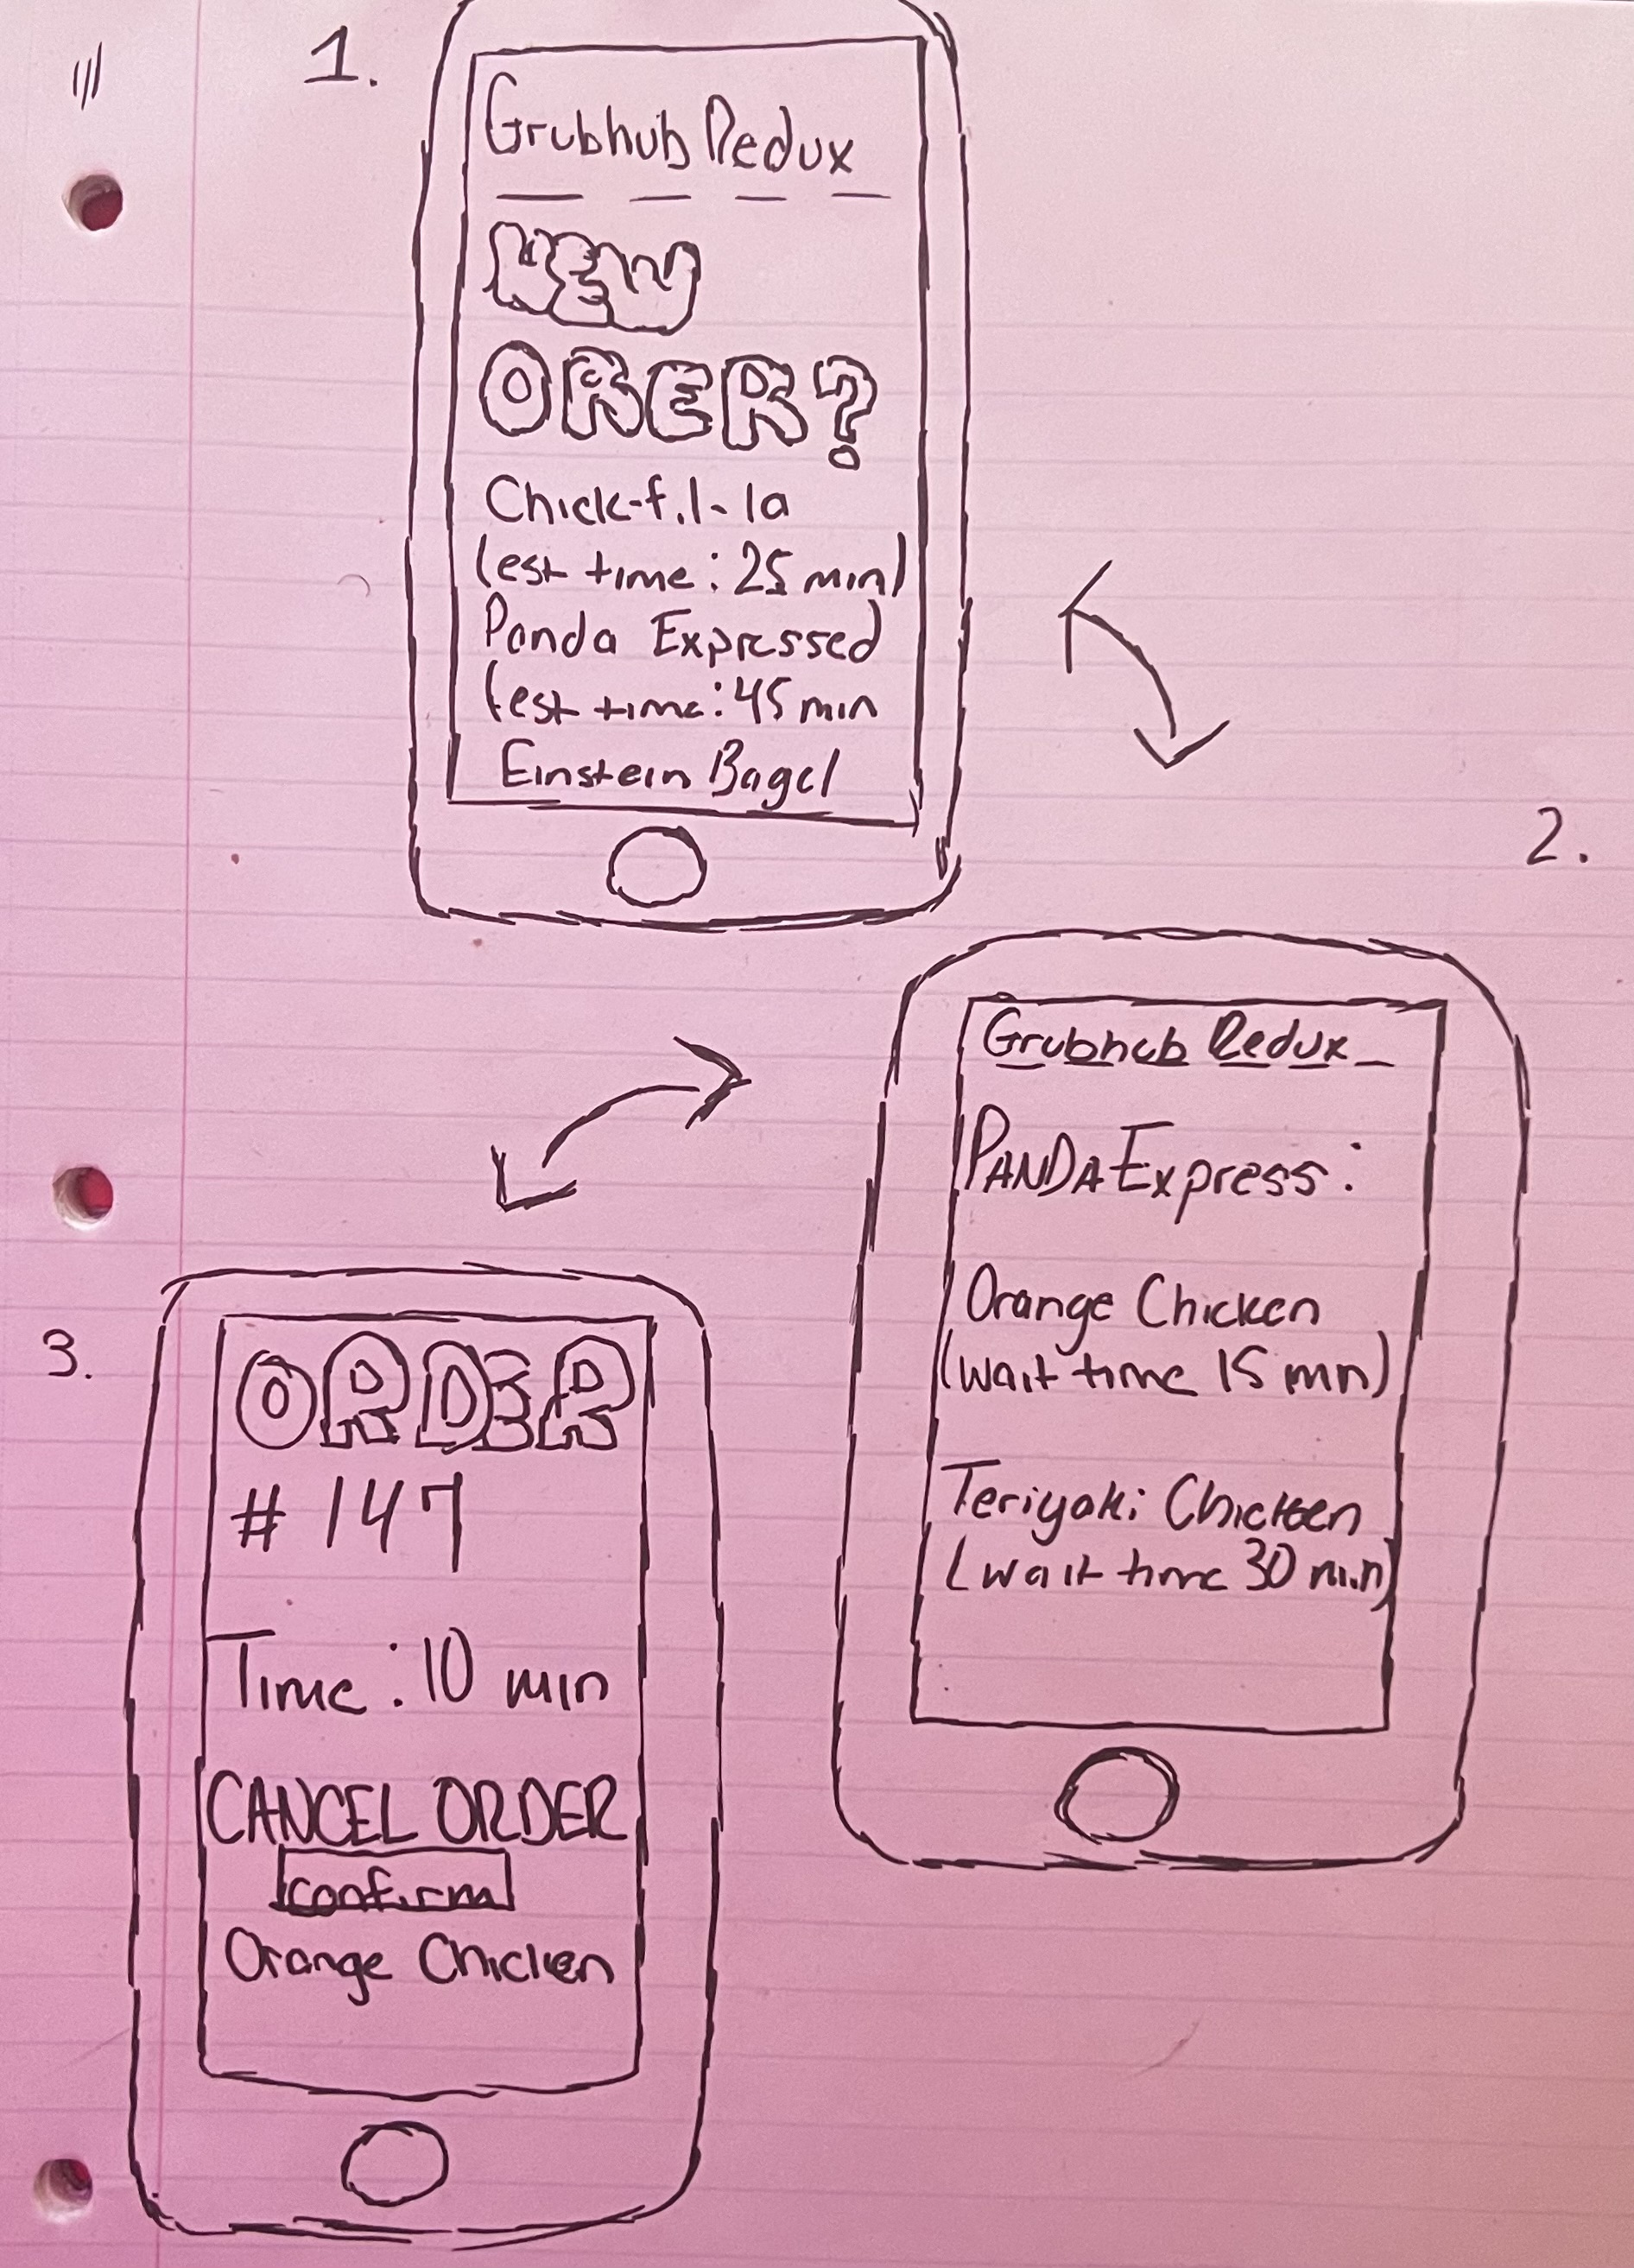 1.
Grubhub Redux
NEW
ORER?
Chick-fil-la
(est time: 25 min)
Panda Expressed
(est time: 45 min
Einstein Bagel
2.
Grubhub Redux
PANDA Express:
Orange Chicken
(wait time 15 mn)
Teriyaki Chicken
(wait time 30 min)
3.
ORDER
# 147
Time: 10 min
CANCEL ORDER
confirm
Orange Chicken